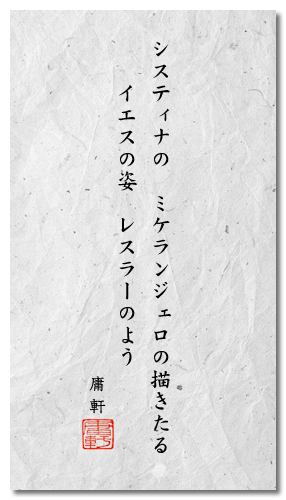 システィナの　ミケランジェロの描きたる
イエスの姿　レスラーのよう
庸軒